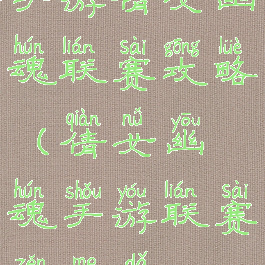 hún lián sài gōng lüè
魂联赛攻略
qiàn nǚ yōu
（倩女幽
hún shǒu yóu lián sài
魂手游联赛
zěn me dǎ